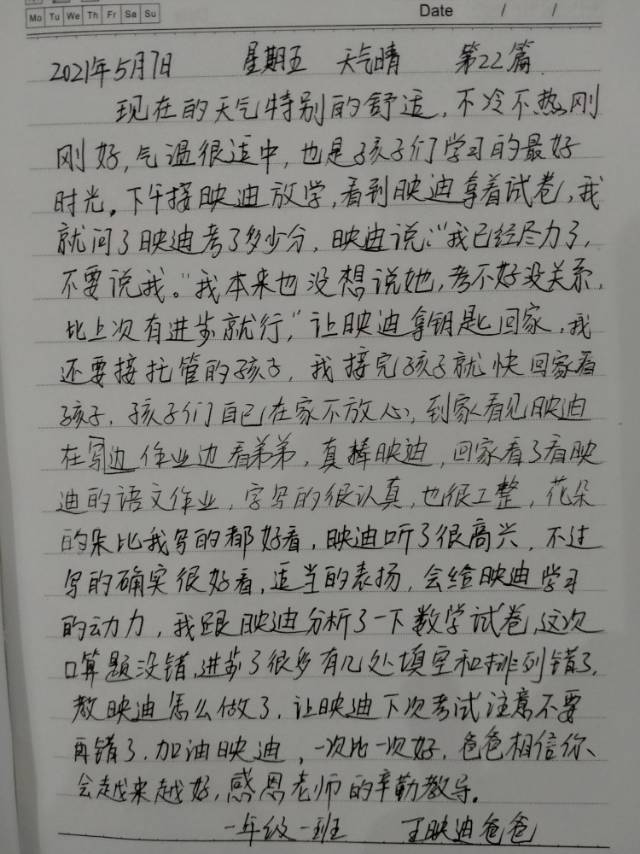 Mo Tu We Th Fr Sa Su
Date / /
2021年5月7日 星期五 天气晴 第22篇
现在的天气特别的舒适，不冷不热，刚
刚好，气温很适中，也是孩子们学习的最好
时光。下午接映迪放学，看到映迪拿着试卷，我
就问了映迪考了多少分，映迪说：“我已经尽力了，
不要说我。”我本来也没想说她，考不好没关系，
比上次有进步就行，”让映迪拿钥匙回家，我
还要接托管的孩子，我接完孩子就快回家看
孩子，孩子们自己在家不放心，到家看见映迪
在写边作业边看弟弟，真棒映迪，回家看了看映
迪的语文作业，字写的很认真，也很工整，花朵
的朵比我写的都好看，映迪听了很高兴，不过
写的确实很好看，适当的表扬，会给映迪学习
的动力，我跟映迪分析了一下数学试卷，这次
口算题没错，进步了很多有几处填空和排列错了，
教映迪怎么做了，让映迪下次考试注意不要
再错了，加油映迪，一次比一次好，爸爸相信你、
会越来越好，感恩老师的辛勤教导。
一年级一班 王映迪爸爸